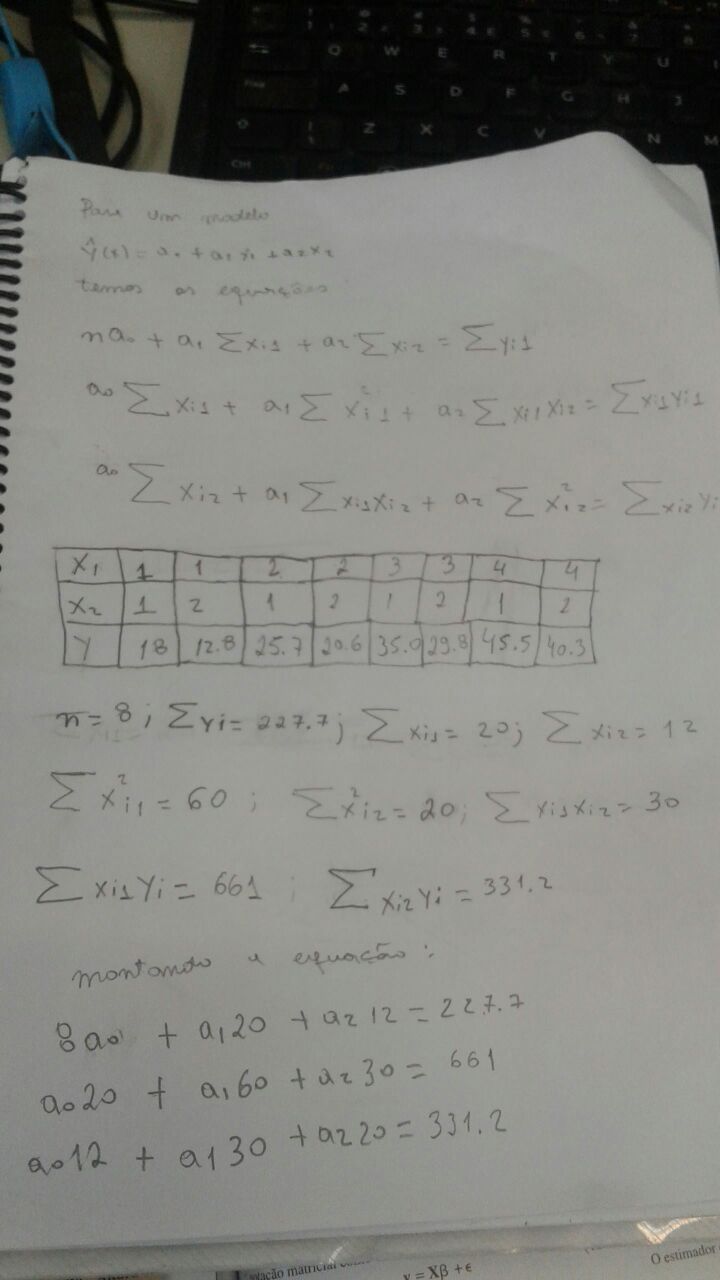 Q W E R T Y U
A S D F G H J
Z X C V N M
Para um modelo
Ŷ(x) = a₀ + a₁x₁ + a₂x₂
temos as equações
na₀ + a₁ ∑xi1 + a₂ ∑xi2 = ∑yi1
a₀ ∑xi1 + a₁ ∑x²i1 + a₂ ∑xi1xi2 = ∑xi1yi1
a₀ ∑xi2 + a₁ ∑xi1xi2 + a₂ ∑x²i2 = ∑xi2yi
X₁ 1 1 2 2 3 3 4 4
X₂ 1 2 1 2 1 2 1 2
Y 18 12.8 25.7 20.6 35.0 29.8 45.5 40.3
n = 8 ; ∑yi = 227.7 ; ∑xi1 = 20 ; ∑xi2 = 12
∑x²i1 = 60 ; ∑x²i2 = 20 ; ∑xi1xi2 = 30
∑xi1yi = 661 ; ∑xi2yi = 331.2
montando a equação :
8a₀ + a₁20 + a₂12 = 227.7
a₀20 + a₁60 + a₂30 = 661
a₀12 + a₁30 + a₂20 = 331.2
matricial
y = Xβ + ϵ
O estimador